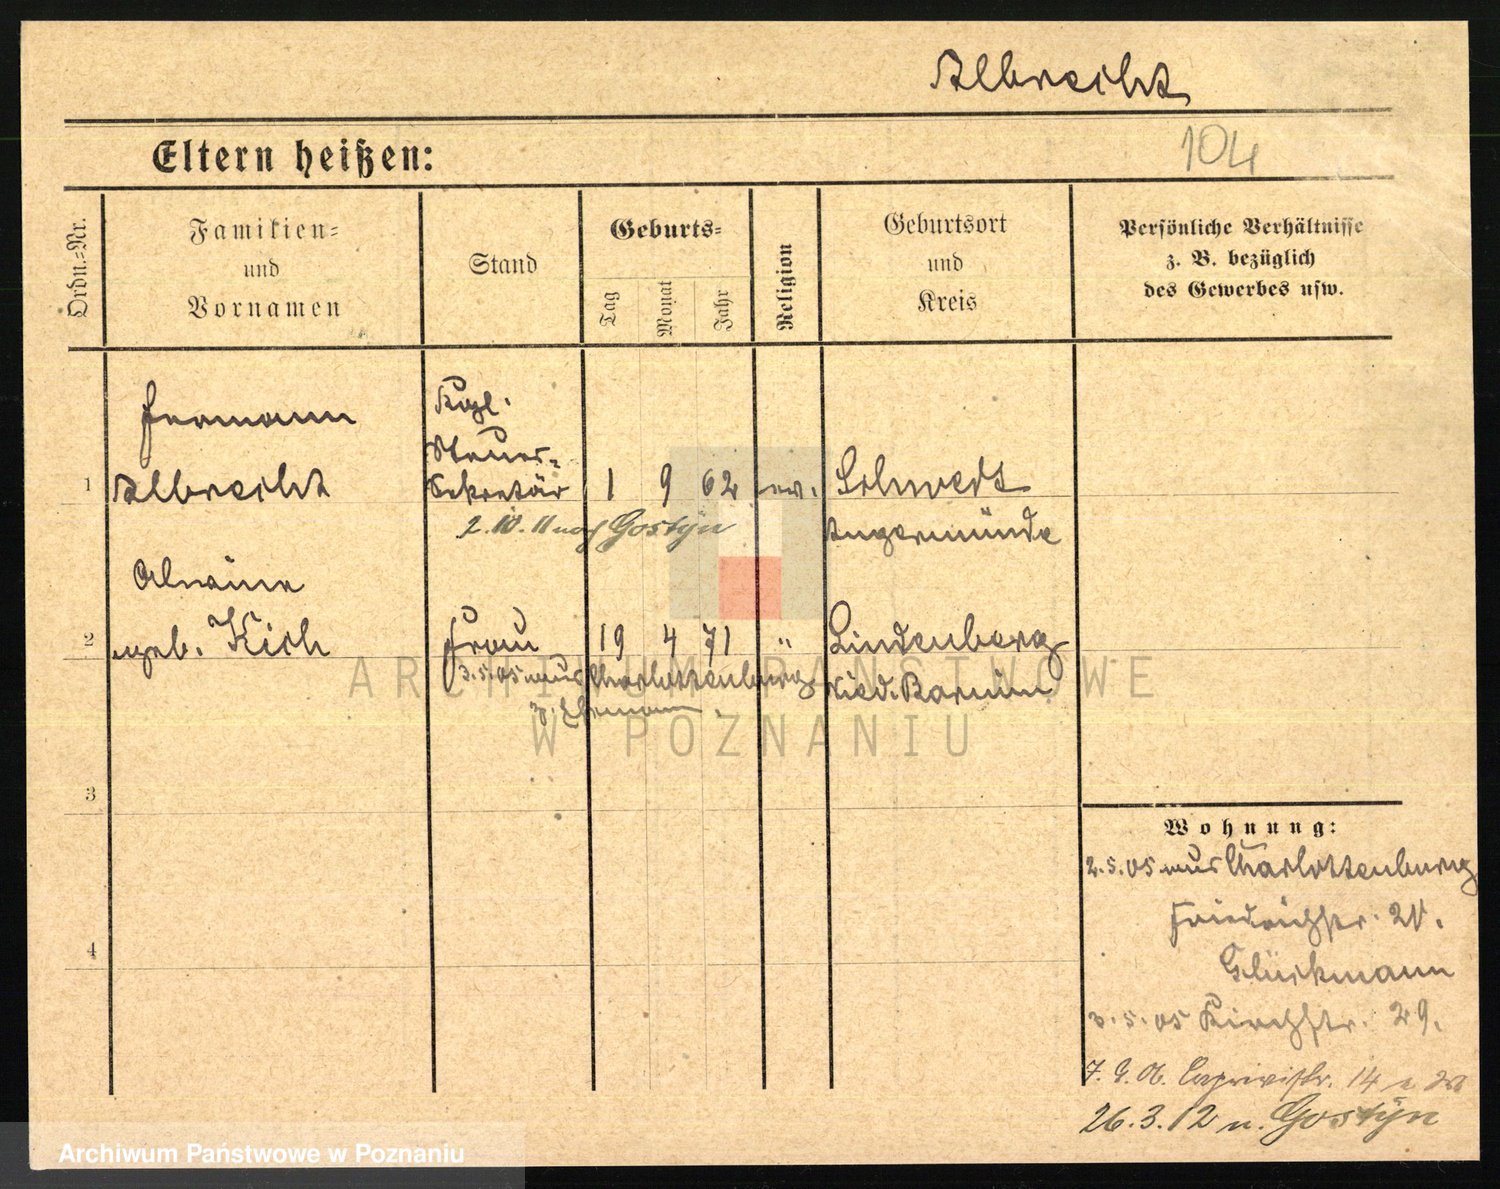 Albrecht
104
Eltern heißen:
Ordn.-Nr.
Familien-
und
Vornamen
Stand
Geburts-
Tag
Monat
Jahr
Religion
Geburtsort
und
Kreis
Persönliche Verhältnisse
z. B. bezüglich
des Gewerbes usw.
Hermann
Kgl.
Steuer-
1 Albrecht Sekretär 1 9 62 ev. Schwedt
2.10.11 nach Gostyn Angermünde
Alwine
2 geb. Kich Frau 19 4 71 " Lindenberg
3.5.05 aus Charlottenburg Nied. Barnim
z. Ehemann.
3
4
Wohnung:
2.5.05 aus Charlottenburg
Friedrichstr. 21.
Glückmann
3.5.05 Kirchstr. 29.
Caprivistr. 14
26.3.12 n. Gostyn
ARCHIWUM PAŃSTWOWE
W POZNANIU
Archiwum Państwowe w Poznaniu